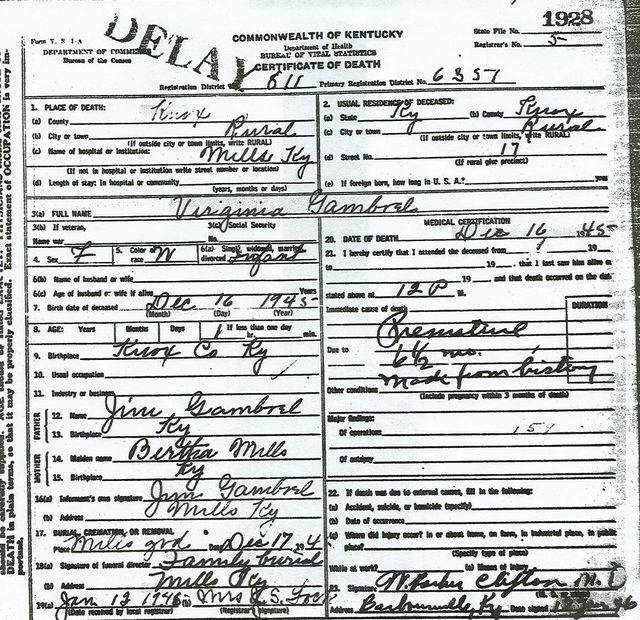 1928
DELAY
Form V. S. 1-A
DEPARTMENT OF COMMERCE
Bureau of the Census
COMMONWEALTH OF KENTUCKY
Department of Health
BUREAU OF VITAL STATISTICS
CERTIFICATE OF DEATH
State File No.
Registrar's No. 5
Registration District 611 Primary Registration District No. 6357
1. PLACE OF DEATH:
(a) County Knox
(b) City or town Rural
(If outside city or town limits, write RURAL)
(c) Name of hospital or institution: Mills Ky
(If not in hospital or institution write street number or location)
(d) Length of stay: In hospital or community
(years, months or days)
2. USUAL RESIDENCE OF DECEASED:
(a) State Ky (b) County Knox
(c) City or town Rural
(If outside city or town limits, write RURAL)
(d) Street No. 17
(If rural give precinct)
(e) If foreign born, how long in U. S. A.? years
3(a) FULL NAME Virginia Gambrel
3(b) If veteran,
Name war
3(c) Social Security
No.
4. Sex F 5. Color or race W 6(a) Single, widowed, married, divorced Infant
6(b) Name of husband or wife
6(c) Age of husband or wife if alive Years
7. Birth date of deceased Dec 16 1945
(Month) (Day) (Year)
8. AGE: Years Months Days If less than one day
min.
9. Birthplace Knox Co Ky
10. Usual occupation
11. Industry or business
FATHER
12. Name Jim Gambrel
13. Birthplace Ky
MOTHER
14. Maiden name Bertha Mills
15. Birthplace Ky
16(a) Informant's own signature Jim Gambrel
(b) Address Mills Ky
17. BURIAL, CREMATION, OR REMOVAL
Place Mills grd Date Dec 17 194
18(a) Signature of funeral director Family burial
(b) Address Mills Ky
19(a) Jan 13 1946 (b) Mrs
(Date received by local registrar) (Registrar's signature)
MEDICAL CERTIFICATION
20. DATE OF DEATH Dec 16 1945
21. I hereby certify that I attended the deceased from 19
to 19 that I last saw him alive
19 and that death occurred on the date
stated above at 12 P M.
Immediate cause of death
DURATION
Premature
Due to 6½ mo.
Made from history
Other conditions
(Include pregnancy within 3 months of death)
Major findings:
Of operations
Of autopsy
22. If death was due to external causes, fill in the following:
(a) Accident, suicide, or homicide (specify)
(b) Date of occurrence
(c) Where did injury occur? in or about home, on farm, in industrial place, in public
place?
(Specify type of place)
While at work? (e) Means of injury
23. Signature Clifton M. D
Address Barbourville, Ky Date signed